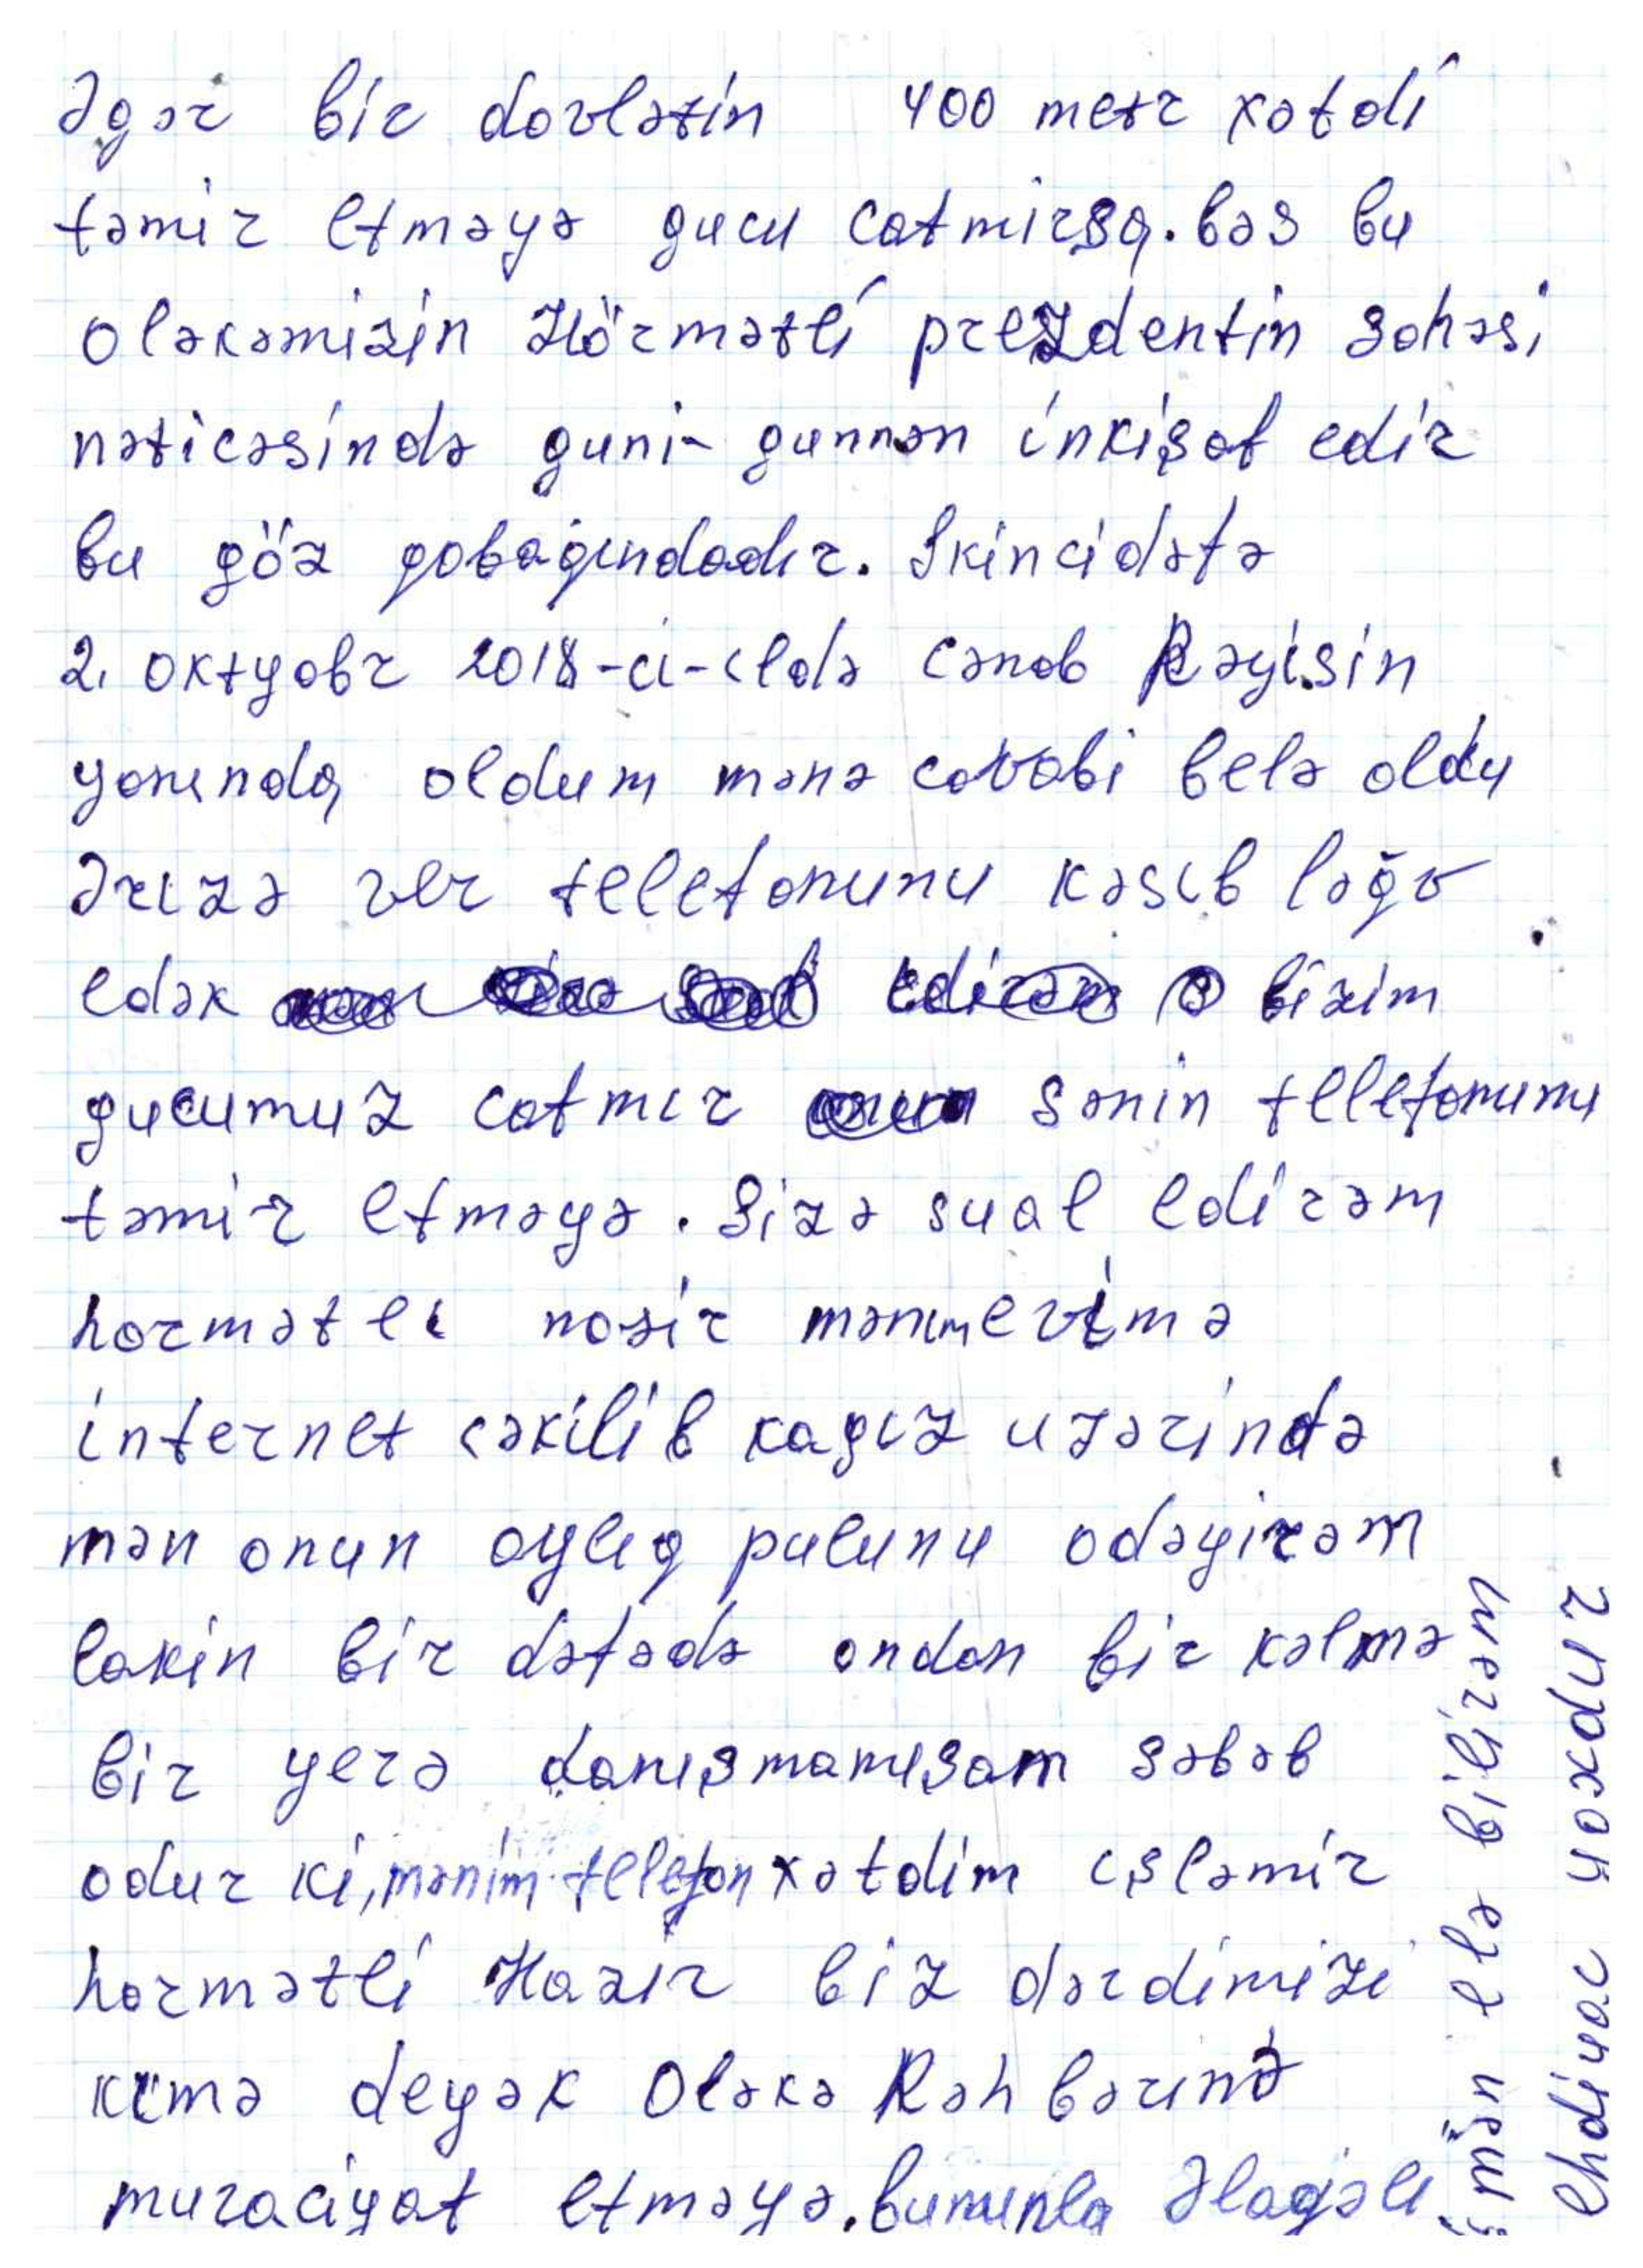 Əgər bir dovlətin 400 metr xətdi
təmir etməyə gucu catmirsa. bəs bu
oləkəmizin Hörmətli prezdentin səhəsi
nəticəsində guni-gunnən inkişaf edir
bu göz qobağındadır. Ikincidəfə
2. oktyabr 2018-ci-ildə cənab Rəyisin
yanında oldum mənə cavabi belə oldu
Ərizə ver telefonunu kəsib ləğv
edək bizim
gucumuz catmır sənin telefonunu
təmir etməyə. Sizə sual edirəm
hormətli nazir mənim evimə
internet cəkilib kagız uzərində
mən onun aylıq pulunu odəyirəm
lakin bir dəfədə ondan bir kəlmə
bir yerə danışmamışam səbəb
odur ki, mənim telefon xətdim işləmir
hormətli Nazir biz dərdimizi
kimə deyək Oləkə Rəhbərinə
muraciyət etməyə. bununla Əlaqəli
mən elə bilirəm
ehdiyac yoxdur